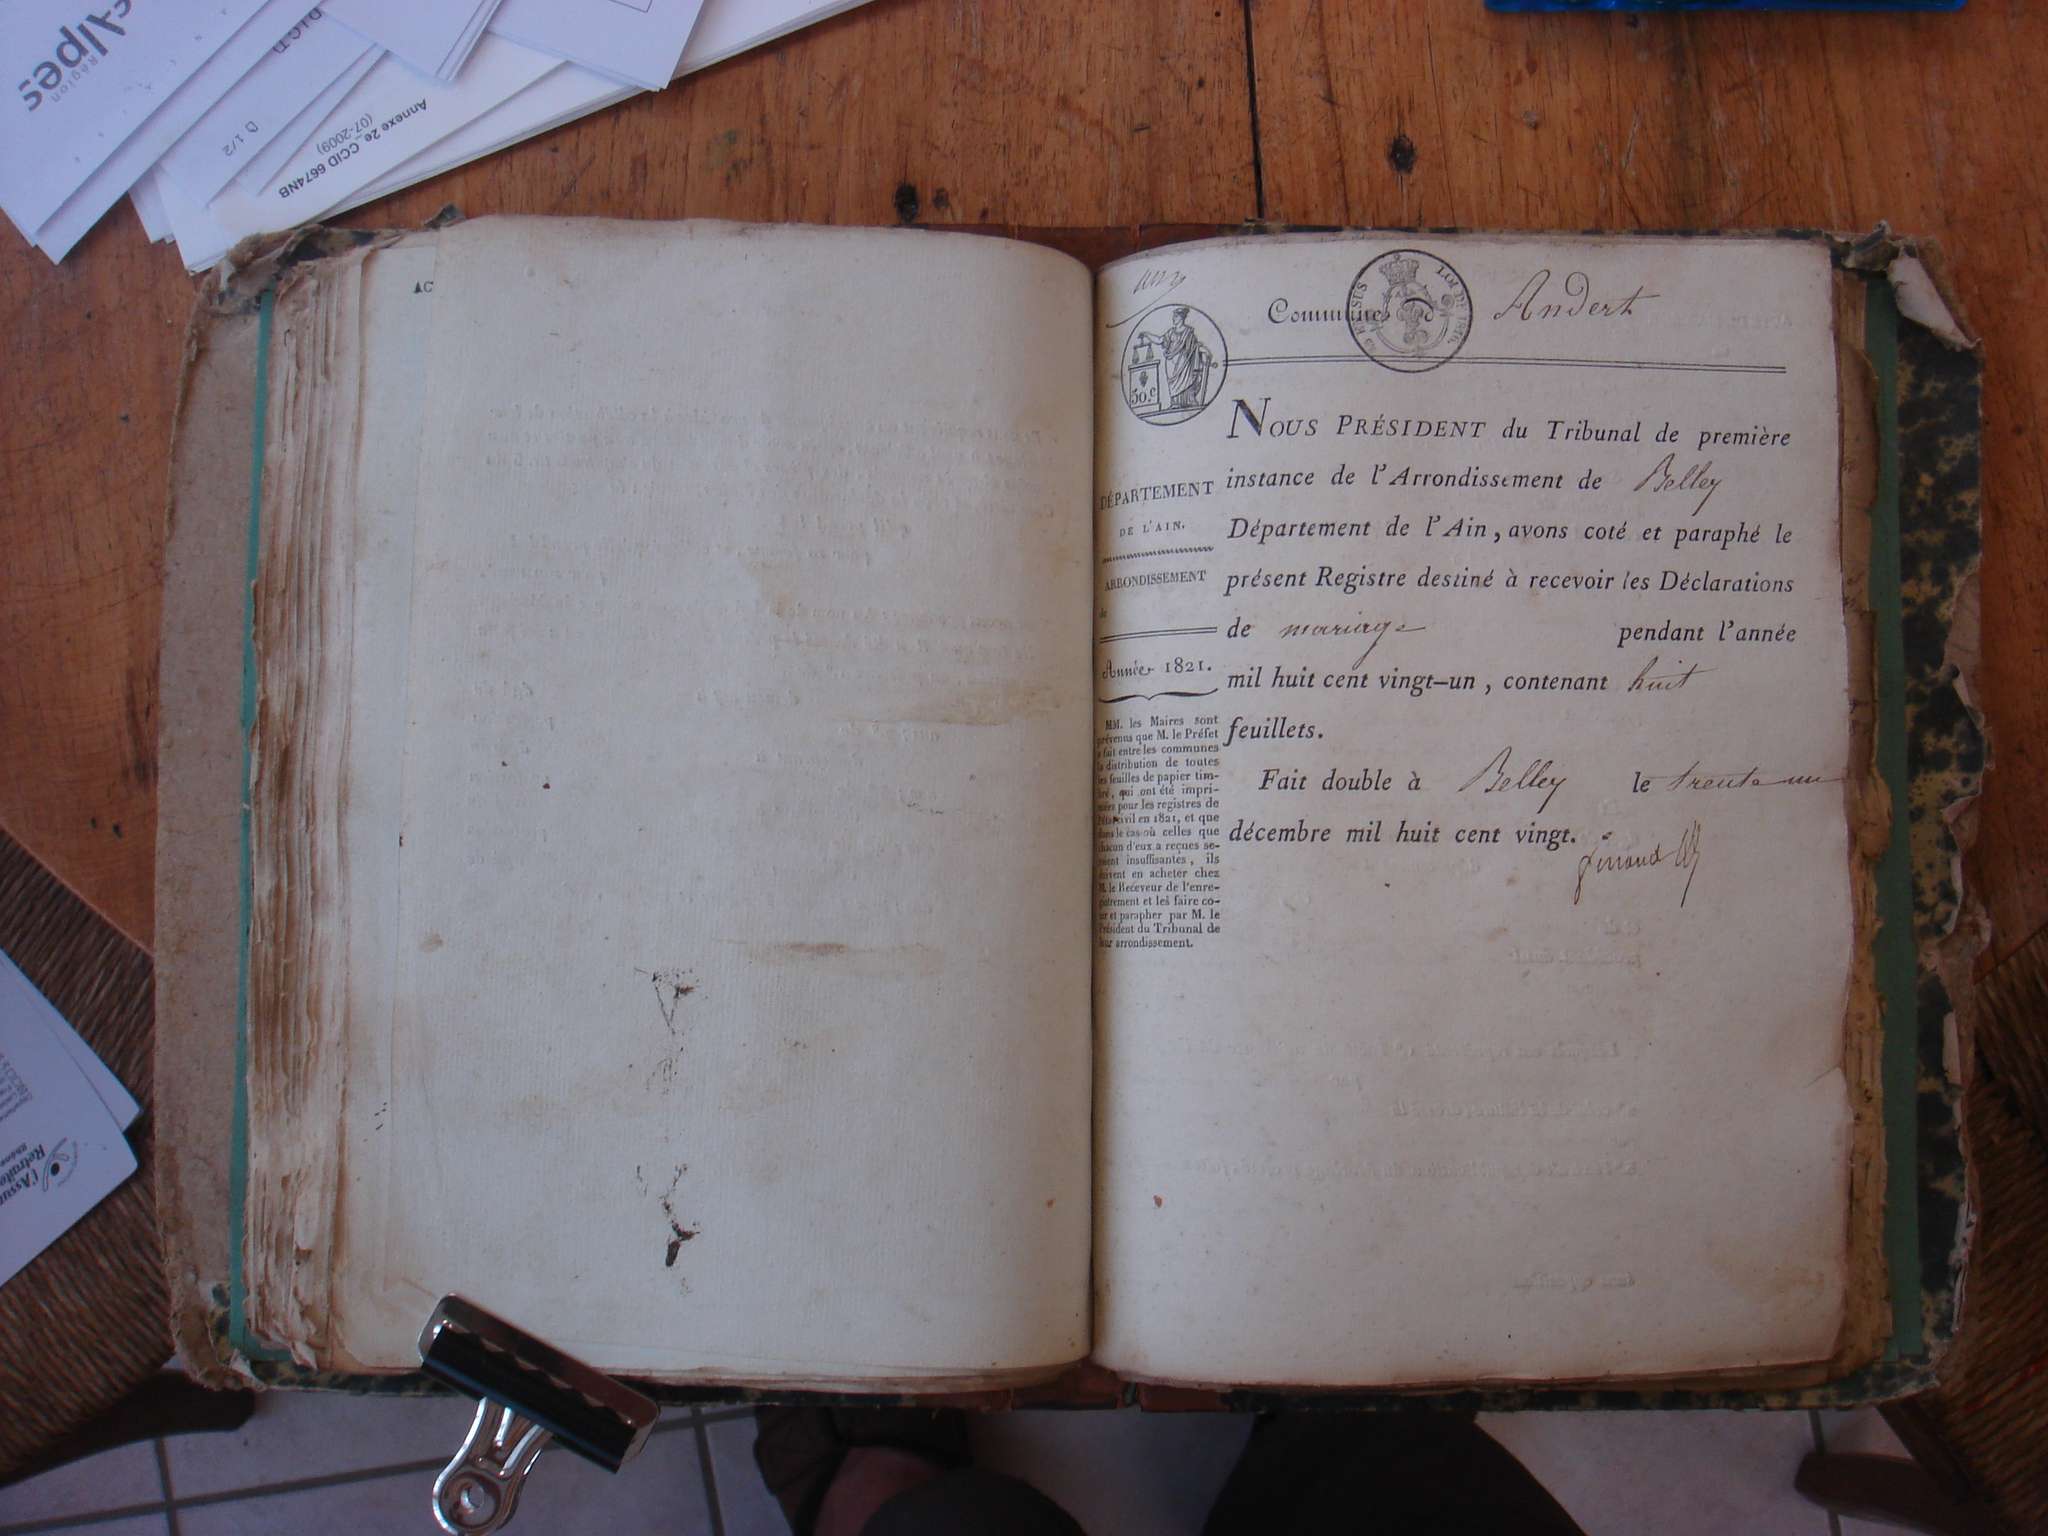 Alpes
Région
D 1/2
Annexe 2e_CCID 6674NB
(07-2009)
AC
Commune d Andert
LOI DE 1816.
50.c
NOUS PRÉSIDENT du Tribunal de première
instance de l'Arrondissement de Belley
Département de l'Ain, avons coté et paraphé le
présent Registre destiné à recevoir les Déclarations
de mariage pendant l'année
mil huit cent vingt-un, contenant huit
feuillets.
Fait double à Belley le trente un
décembre mil huit cent vingt.
DÉPARTEMENT
DE L'AIN.
ARRONDISSEMENT
de
Année 1821.
MM. les Maires sont
prévenus que M. le Préfet
a fait entre les communes
la distribution de toutes
les feuilles de papier tim-
bré, qui ont été impri-
mées pour les registres de
l'état civil en 1821, et que
dans le cas où celles que
chacun d'eux a reçues se-
roient insuffisantes, ils
doivent en acheter chez
M. le Receveur de l'enre-
gistrement et les faire co-
ter et parapher par M. le
Président du Tribunal de
leur arrondissement.
l'Assu
Retraite